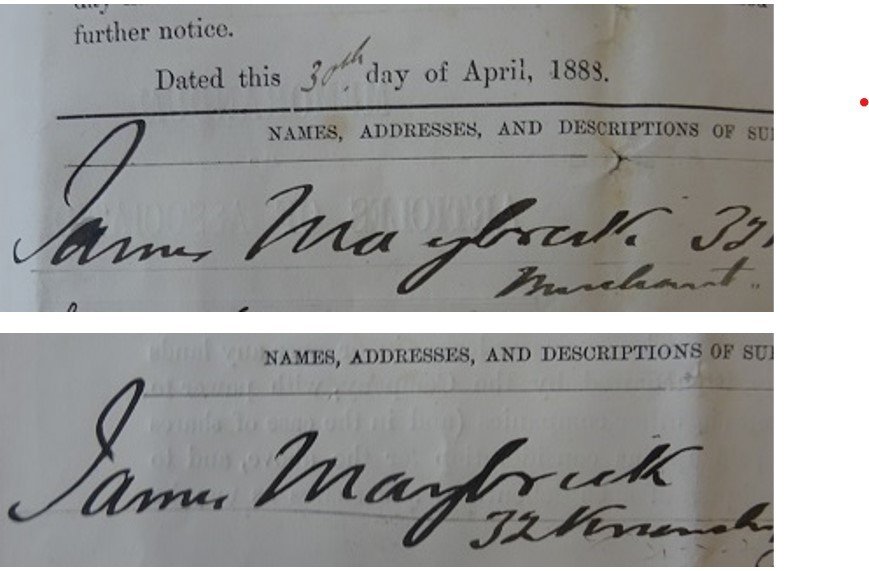 further notice.
Dated this 30th day of April, 1888.
NAMES, ADDRESSES, AND DESCRIPTIONS OF SU
James Maybrick 32
Merchant.
NAMES, ADDRESSES, AND DESCRIPTIONS OF SU
James Maybrick
32